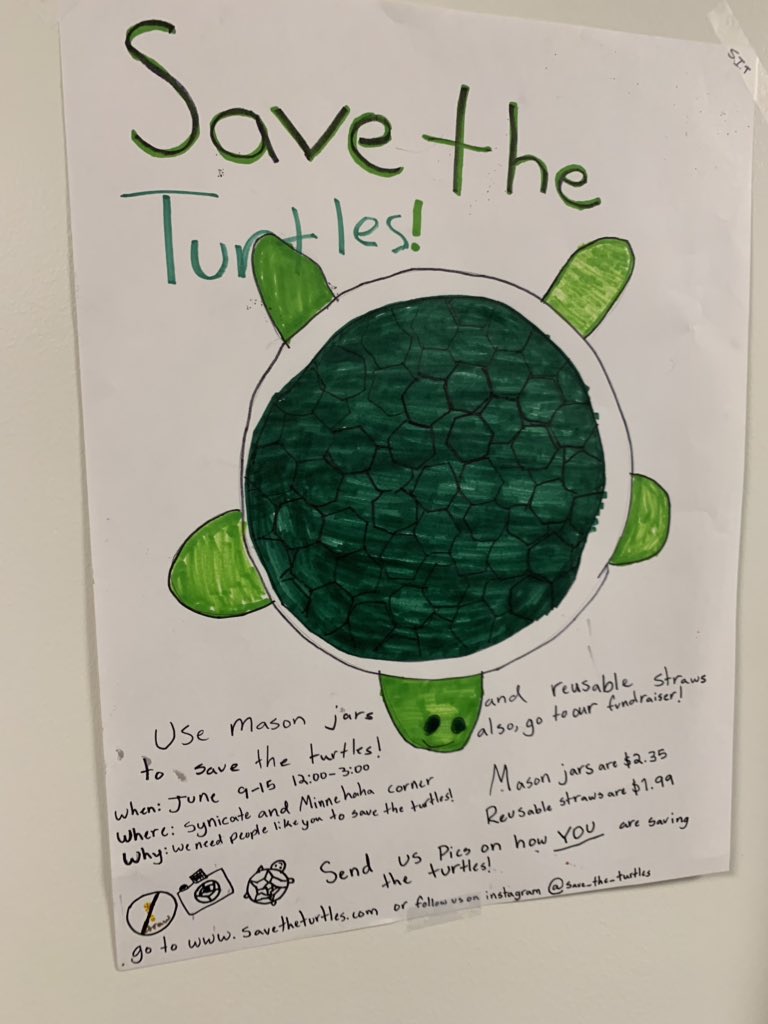 S.I.T
Save the
Turtles!
Use mason jars
to save the turtles!
and reusable straws
also, go to our fundraiser!
When: June 9-15 12:00-3:00
Where: Synicate and Minnehaha corner
Why: we need people like you to save the turtles!
Mason jars are $2.35
Reusable straws are $1.99
Send us Pics on how YOU are saving
the turtles!
straw
go to www.savetheturtles.com or follow us on instagram @save_the_turtles